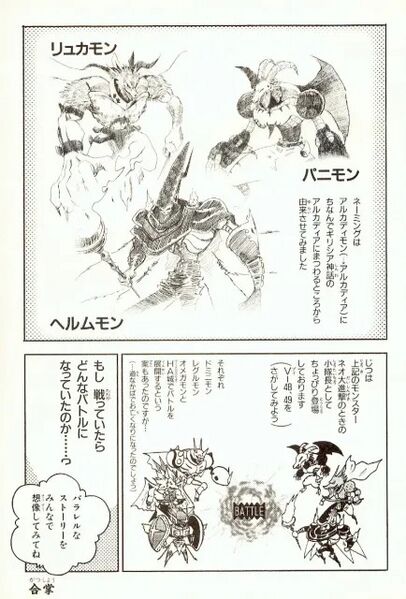 リュカモン
パニモン
ヘルムモン
ネーミングは
アルカディモン(→アルカディア)に
ちなんでギリシア神話の
アルカディアにまつわるところから
由来させてみました
じつは
上記のモンスター
ネオ大進撃のときの
小隊長として
ちょっぴり登場
しております
(V-48・49を
さがしてみよう)
それぞれ
ドミニモン
レグルモン
オメガモンと
HA城でバトルを
展開するという
案もあったのですが…
(→道なかばでお亡くなりになったのでしょう)
BATTLE
もし 戦っていたら
どんなバトルに
なっていたのか……?
パラレルな
ストーリーを
みんなで
想像してみてね
合掌
がっしょう